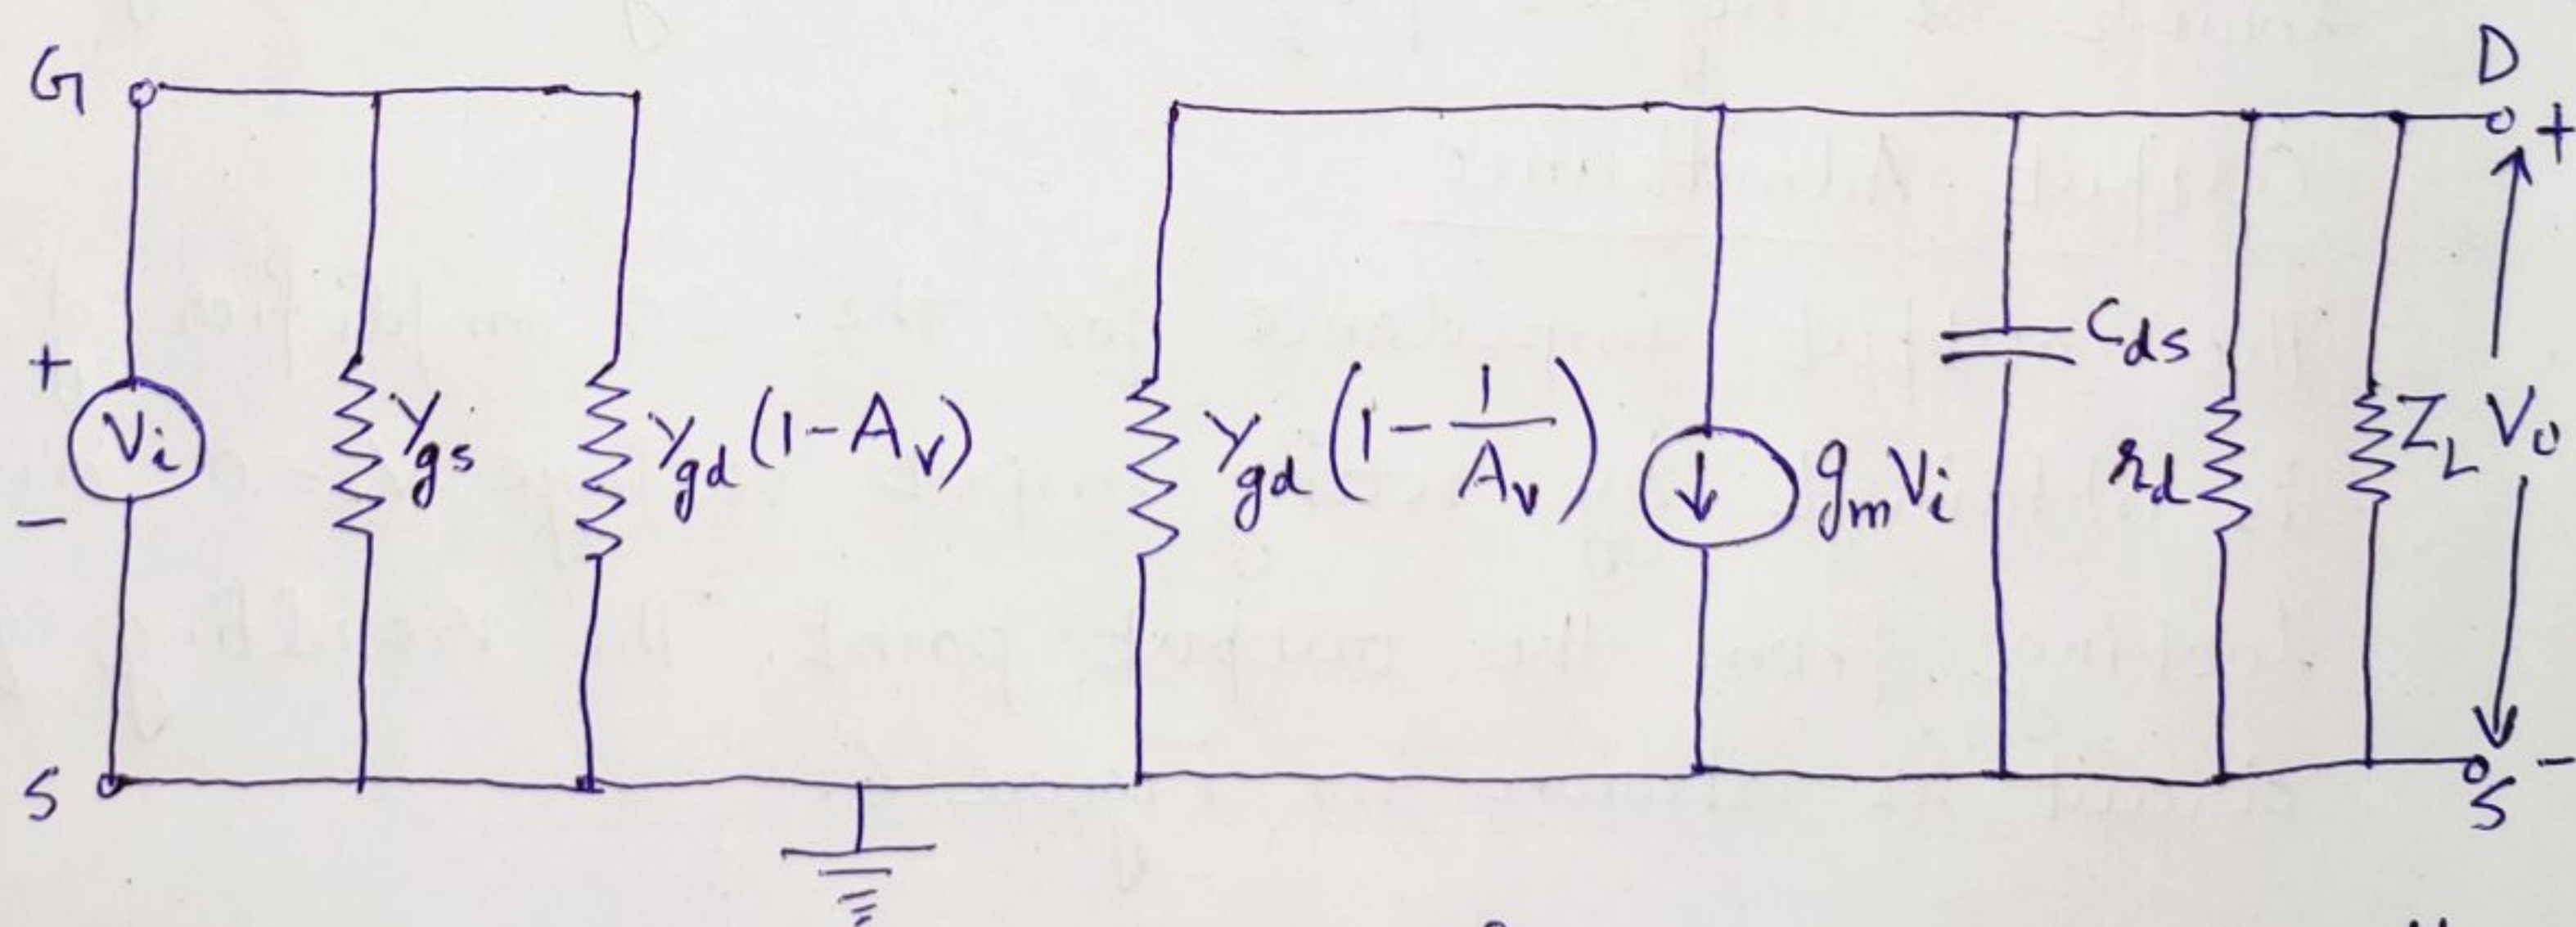 G
D
+
+
Vi
-
Ygs
Ygd (1 - Av)
Ygd (1 - 1/Av)
gmVi
Cds
rd
ZL
Vo
S
S
-